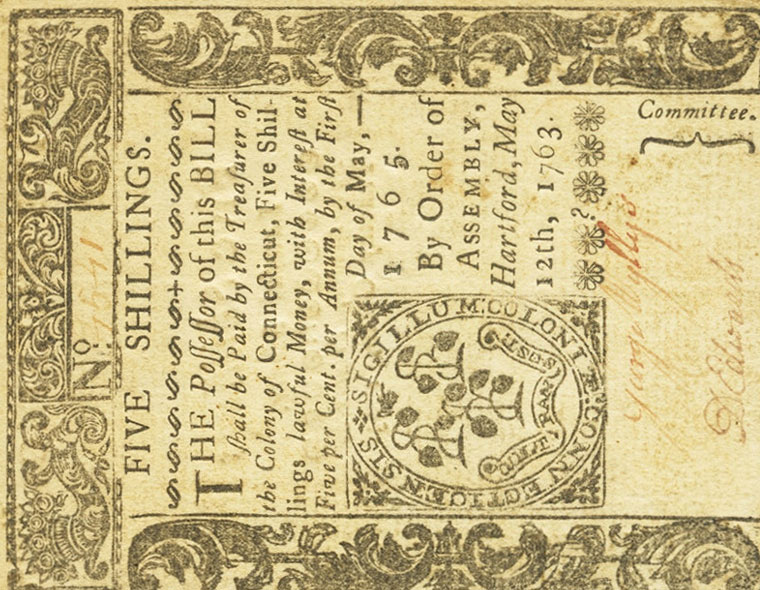 No.
FIVE SHILLINGS.
THE Poſſeſſor of this BILL
ſhall be Paid by the Treaſurer of
the Colony of Connecticut, Five Shil-
lings lawful Money, with Intereſt at
Five per Cent. per Annum, by the Firſt
Day of May,—
1765.
By Order of
ASSEMBLY,
Hartford, May
12th, 1763.
SIGILLUM: COLONIÆ: CONNECTICENSIS
George Wyllys
Edwards
Committee.